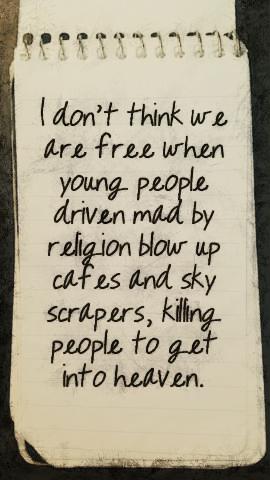 I don't think we
are free when
young people
driven mad by
religion blow up
cafes and sky
scrapers, killing
people to get
into heaven.